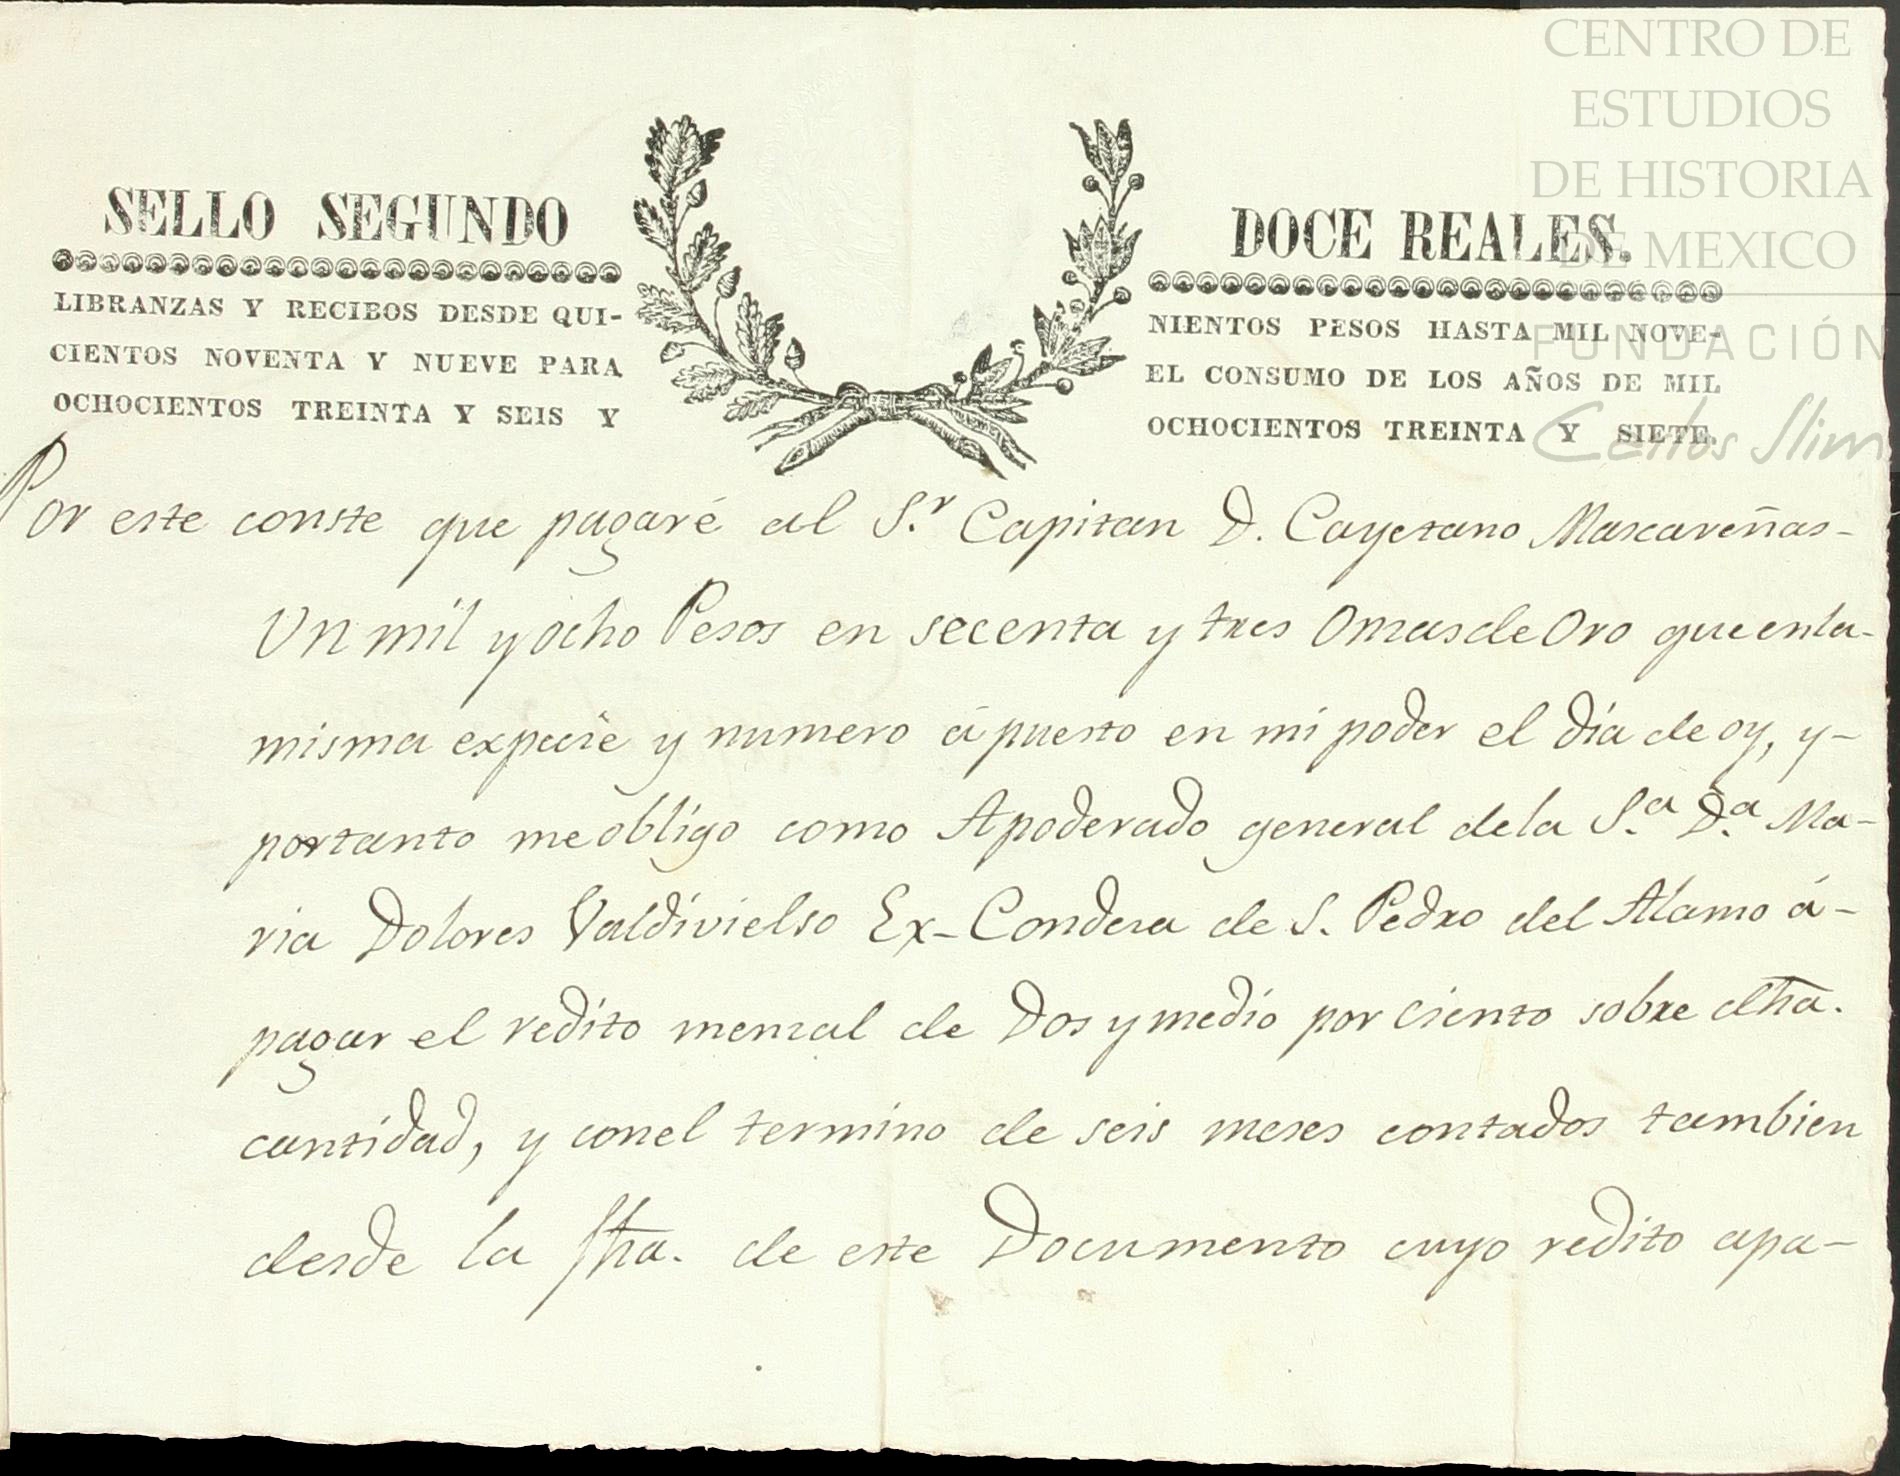 CENTRO DE
ESTUDIOS
DE HISTORIA
DE MEXICO
FUNDACIÓN
Carlos Slim
SELLO SEGUNDO
LIBRANZAS Y RECIBOS DESDE QUI-
CIENTOS NOVENTA Y NUEVE PARA
OCHOCIENTOS TREINTA Y SEIS Y
DOCE REALES.
NIENTOS PESOS HASTA MIL NOVE-
EL CONSUMO DE LOS AÑOS DE MIL
OCHOCIENTOS TREINTA Y SIETE.
Por este conste que pagaré al S.r Capitan D. Cayetano Mascareñas-
Un mil y ocho Pesos en secenta y tres Onzas de Oro que en la-
misma expecie y numero á puesto en mi poder el dia de oy, y-
portanto me obligo como Apoderado general de la S.a D.a Ma-
ria Dolores Valdivielso Ex-Condesa de S. Pedro del Alamo á-
pagar el redito mensal de Dos y medio por ciento sobre dha.
cantidad, y con el termino de seis meses contados tambien
desde la fha. de este Documento cuyo redito apa-